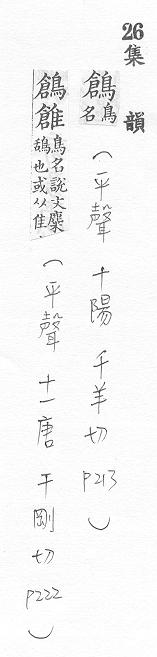 26 集韻
鶬 鳥名 (平聲 十陽 千羊切 P213)
鶬 鳥名說文麋鴰也或从隹 (平聲 十一唐 干剛切 P222)